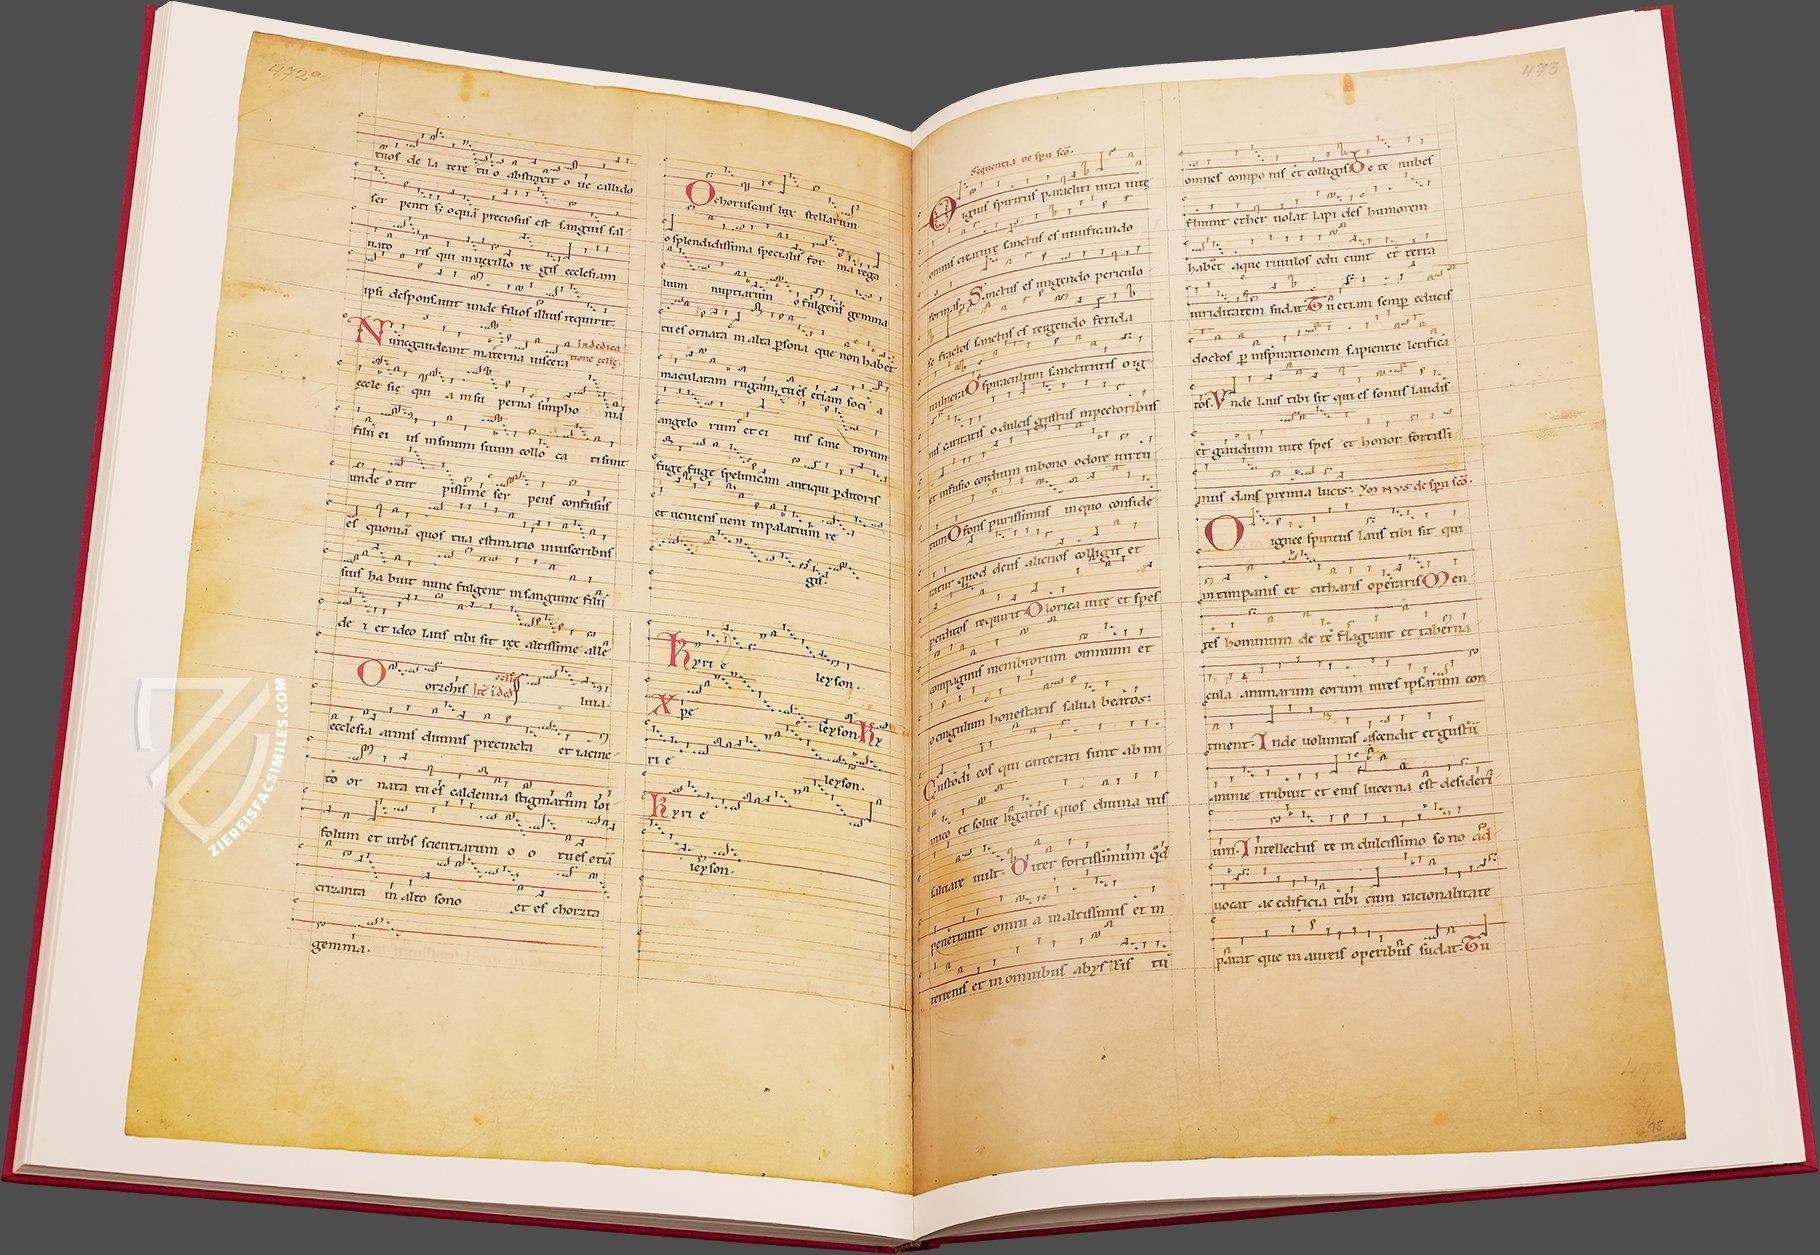 472a
tuos de la tere tuo abstraxit o ue callido
ser penti s; o quā preciosus est sanguis sal
uato ris qui in uexillo re gis ecclesiam
ipsi desponsauit unde filios illius requirit.
Nunc gaudeant materna uiscera In dedica
tione eccl̄ę.
eccle się qui a in su perna simpho nia
filii ei us in sinum suum collo ca ti sunt
unde o tur pissime ser pens confusus
es quoniā quos tua estimatio in uisceribus
suis ha buit nunc fulgent in sanguine filii
de i et ideo laus tibi sit rex altissime alle
luia.
O orzchis Itē idē
ecclesia armis diuinis precincta et iacinc
to or nata tu es caldemia stigmatum loi
folum et urbs scientiarum o o tu es etiā
crizanta in alto sono et es chorzta
gemma.
O choruscans lux stellarum
o splendidissima specialis for ma rega
lium nuptiarum o fulgens gemma
tu es ornata in alta p̱sona que non habet
maculatam rugam; tu es etiam soci a
angelo rum et ci uis sanc torum
fuge fuge speluncam antiqui p̱ditoris
et ueniens ueni in palatium re
gis.
Kyri e leyson.
Xp̄e leyson. Ky
ri e leyson.
Kyri e
leyson.
473
Sequentia de sp̄u sc̄o.
O ignis spiritus paracliti uita uite
omnis creature sanctus es uiuificando
formas; Sanctus es ungendo periculo
se fractos sanctus es tergendo fetida
uulnera O spiraculum sanctitatis o ig
nis caritatis o dulcis gustus in pectoribus
et infusio cordium in bono odore uirtu
tum O fons purissimus in quo conside
ratur quod deus alienos colligit et
perditos requirit O lorica uite et spes
compaginis membrorum omnium et
o cingulum honestatis salua beatos:
Custodi eos qui carcerati sunt ab ini
mico et solue ligatos quos diuina uis
saluare uult. O iter fortissimum qd̄
penetrauit omni a in altissimis et in
terrenis et in omnibus abyssis tu
omnes compo nis et colligis De te nubes
fluunt ether uolat lapi des humorem
habent aque riuulos edu cunt et terra
uiriditatem sudat. Tu etiam semp̱ educis
doctos p̱ inspirationem sapientie letifica
tos. Vnde laus tibi sit qui es sonus laudis
et gaudium uite spes et honor fortissi
mus dans premia lucis: Ymnvs de sp̄u sc̄o.
O ignee spiritus laus tibi sit qui
in timpanis et citharis operaris Men
tes hominum de te flagrant et taberna
cula animarum eorum uires ipsarum con
tinent. Inde uoluntas ascendit et gustū
anime tribuit et eius lucerna est desideri
um. Intellectus te in dulcissimo so no ad
uocat ac edificia tibi cum racionalitate
parat que in aureis operibus sudat. Tu
ZIEREISFACSIMILES.COM